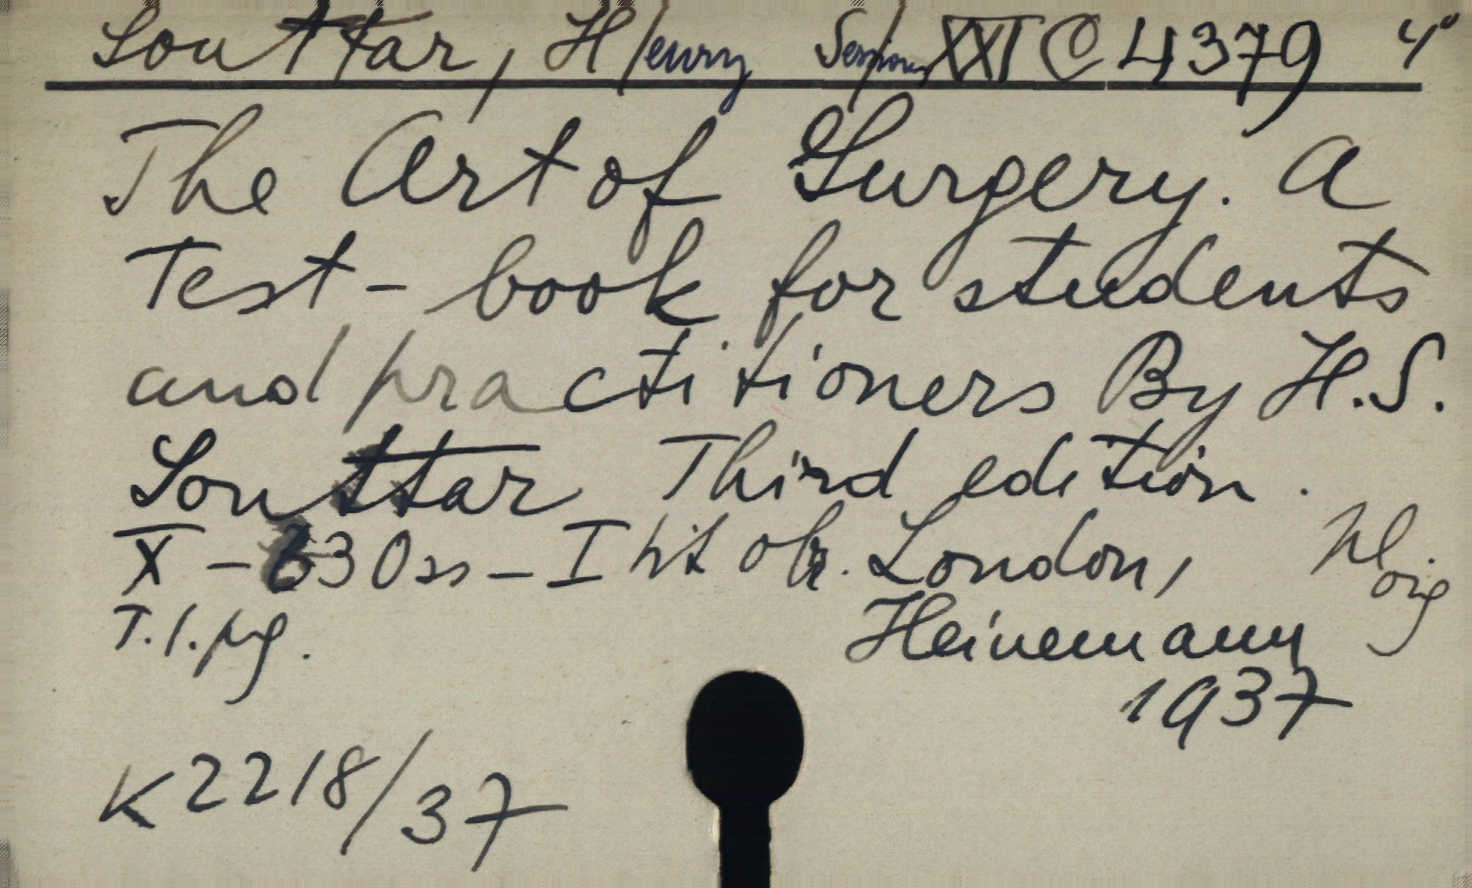 Souttar, H/enry Sessions/ XXI C 4379 4°
The Art of Surgery. A
Test-book for students
and practitioners By H.S.
Souttar Third edition.
X - 630 ss - I tit obr. London,
T. 1. pg. Heinemann
1937
K 2218/37